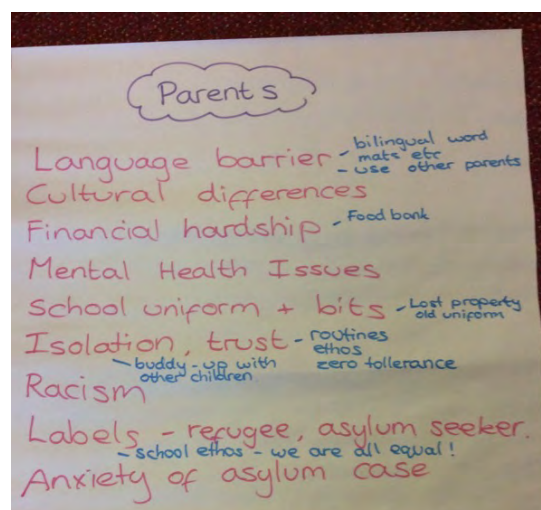 Parents
Language barrier - bilingual word
mats etc
- use other parents
Cultural differences
Financial hardship - Food bank
Mental Health Issues
School uniform + bits - Lost property
old uniform
Isolation, trust - routines
ethos
zero tollerance
- buddy - up with
other children
Racism
Labels - refugee, asylum seeker.
- school ethos - we are all equal!
Anxiety of asylum case